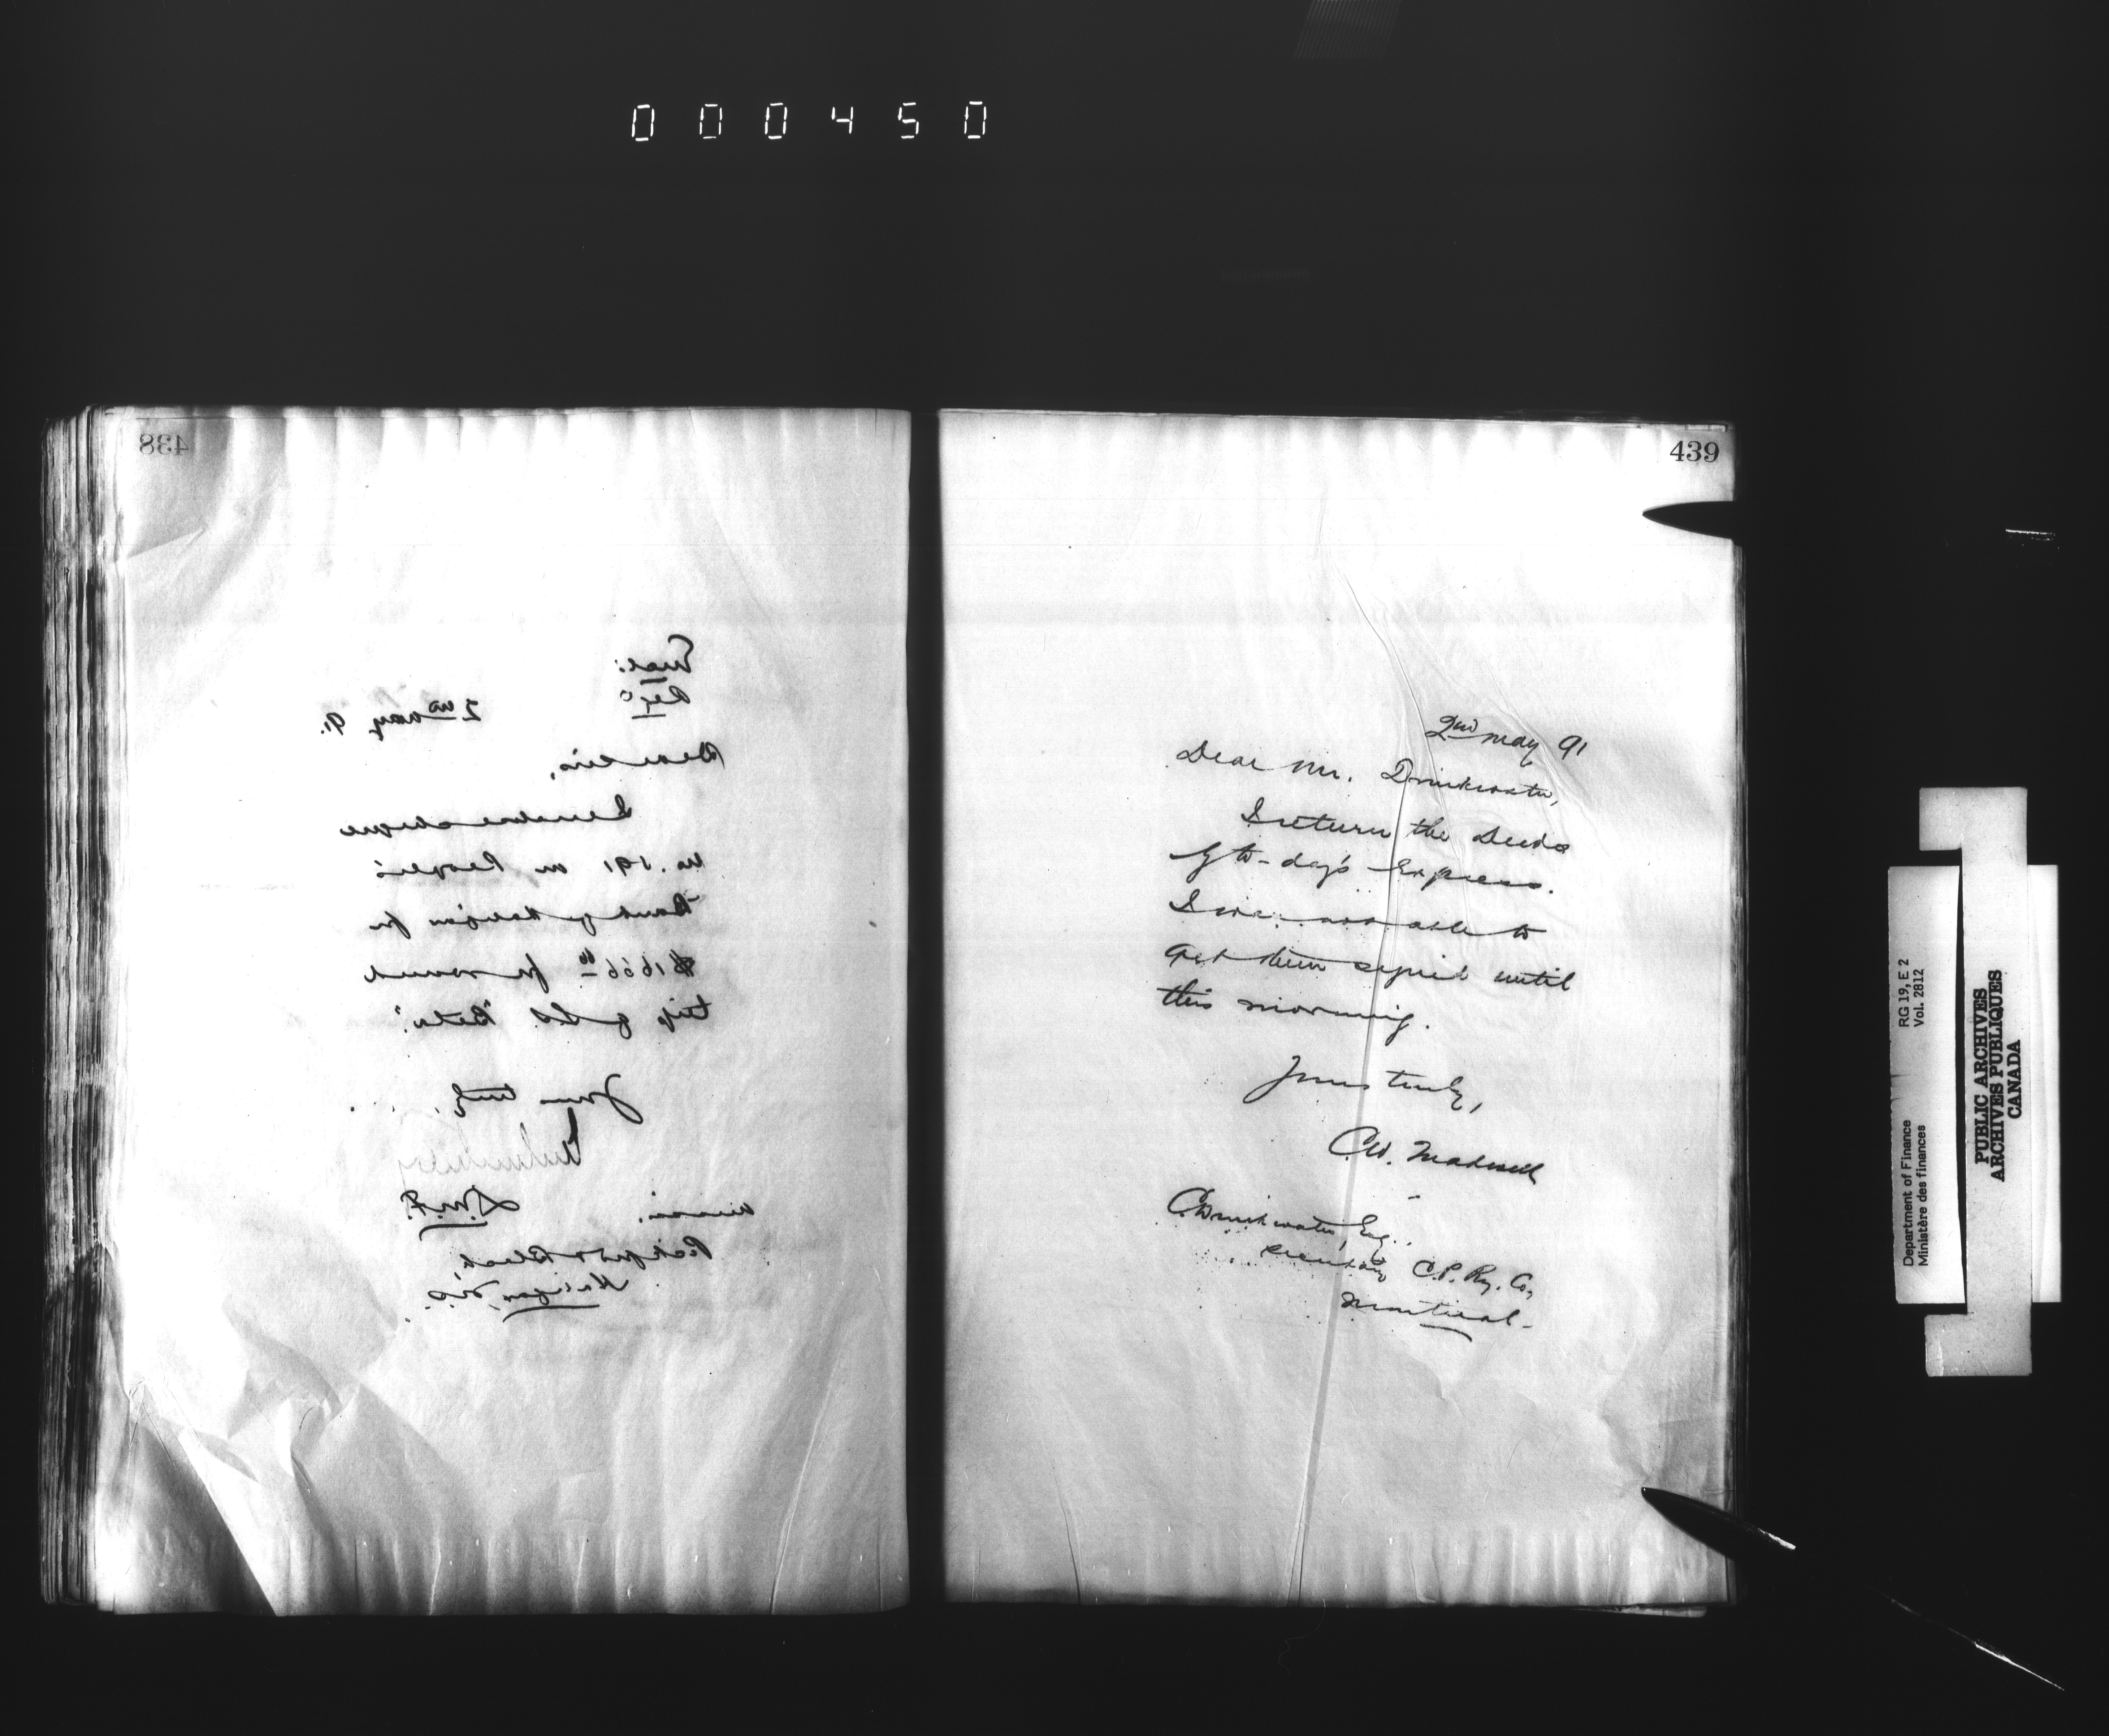 000450
438
Encl:
Reg^d
2nd May 91.
Dear Sirs,
I enclose cheque
No. 191 on People's
Bank of Halifax for
$1666 66 for round
trip of S.S. "Beta".
Yours truly,
D.M.F.
Messrs.
Pickford & Black,
Halifax, N.S.
439
2nd May 91
Dear Mr. Drinkwater,
I return the Deeds
by to-day's Express.
I was not able to
get them signed until
this morning.
Yours truly,
C.
C. Drinkwater, Esq.,
Secretary C.P. Ry. Co.,
Montreal.
Department of Finance
Ministère des finances
RG 19, E 2
Vol. 2812
PUBLIC ARCHIVES
ARCHIVES PUBLIQUES
CANADA